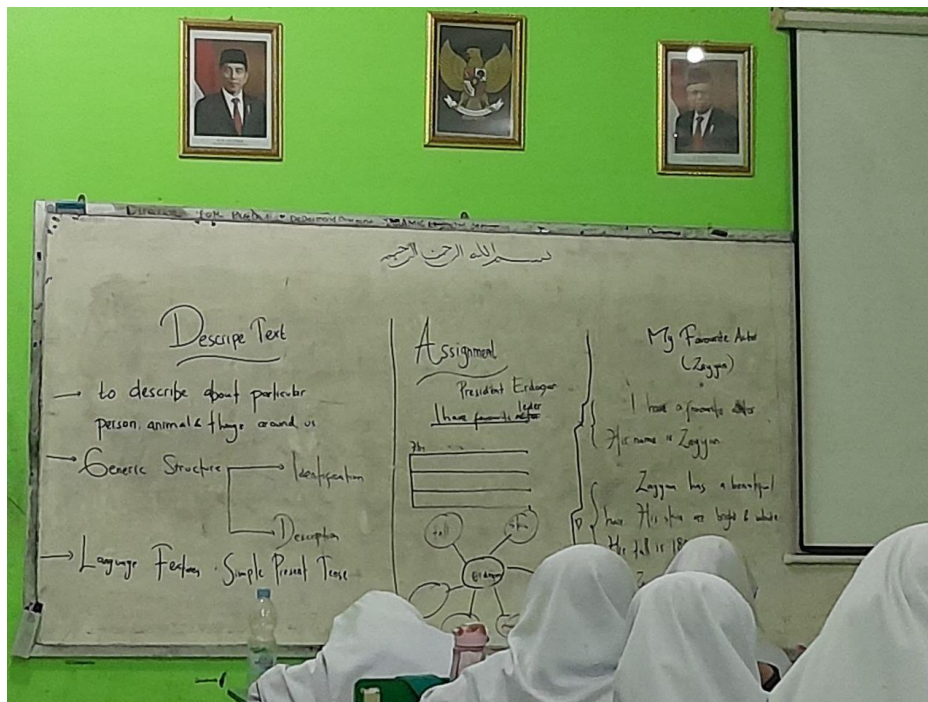 بسم الله الرحمن الرحيم
Descripe Text
→ to describe about particular
person, animal & things around us
→ Generic Structure → Identification
→ Description
→ Language Features . Simple Present Tense
Assignment
President Erdogan
I have favourite leder
His
tall
skin
Erdogan
My Favourite Actor
(Zayyan)
I have a favourite
His name is Zayyan
Zayyan has a beautiful
His skin are bright & white
His tall is 18